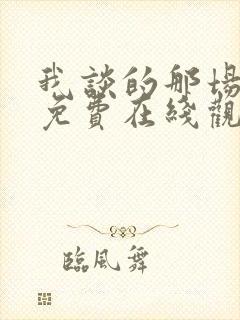 我談的那場
免費在綫觀
臨風舞